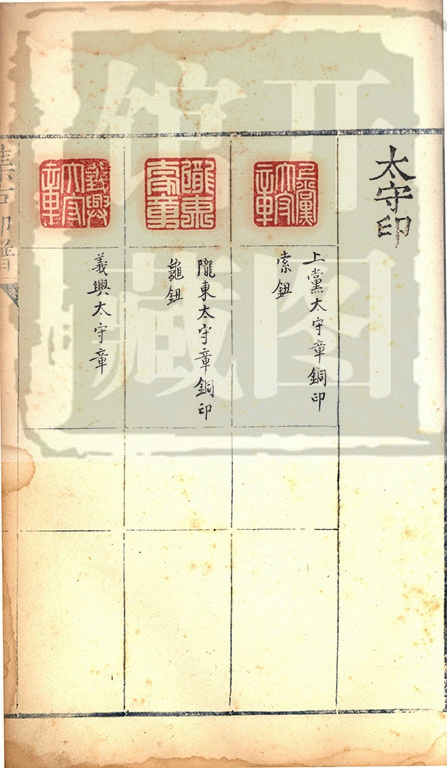 太守印
上黨太守章
上黨太守章銅印
索鈕
隴東太守章
隴東太守章銅印
龜鈕
義興太守章
義興太守章
集古印譜